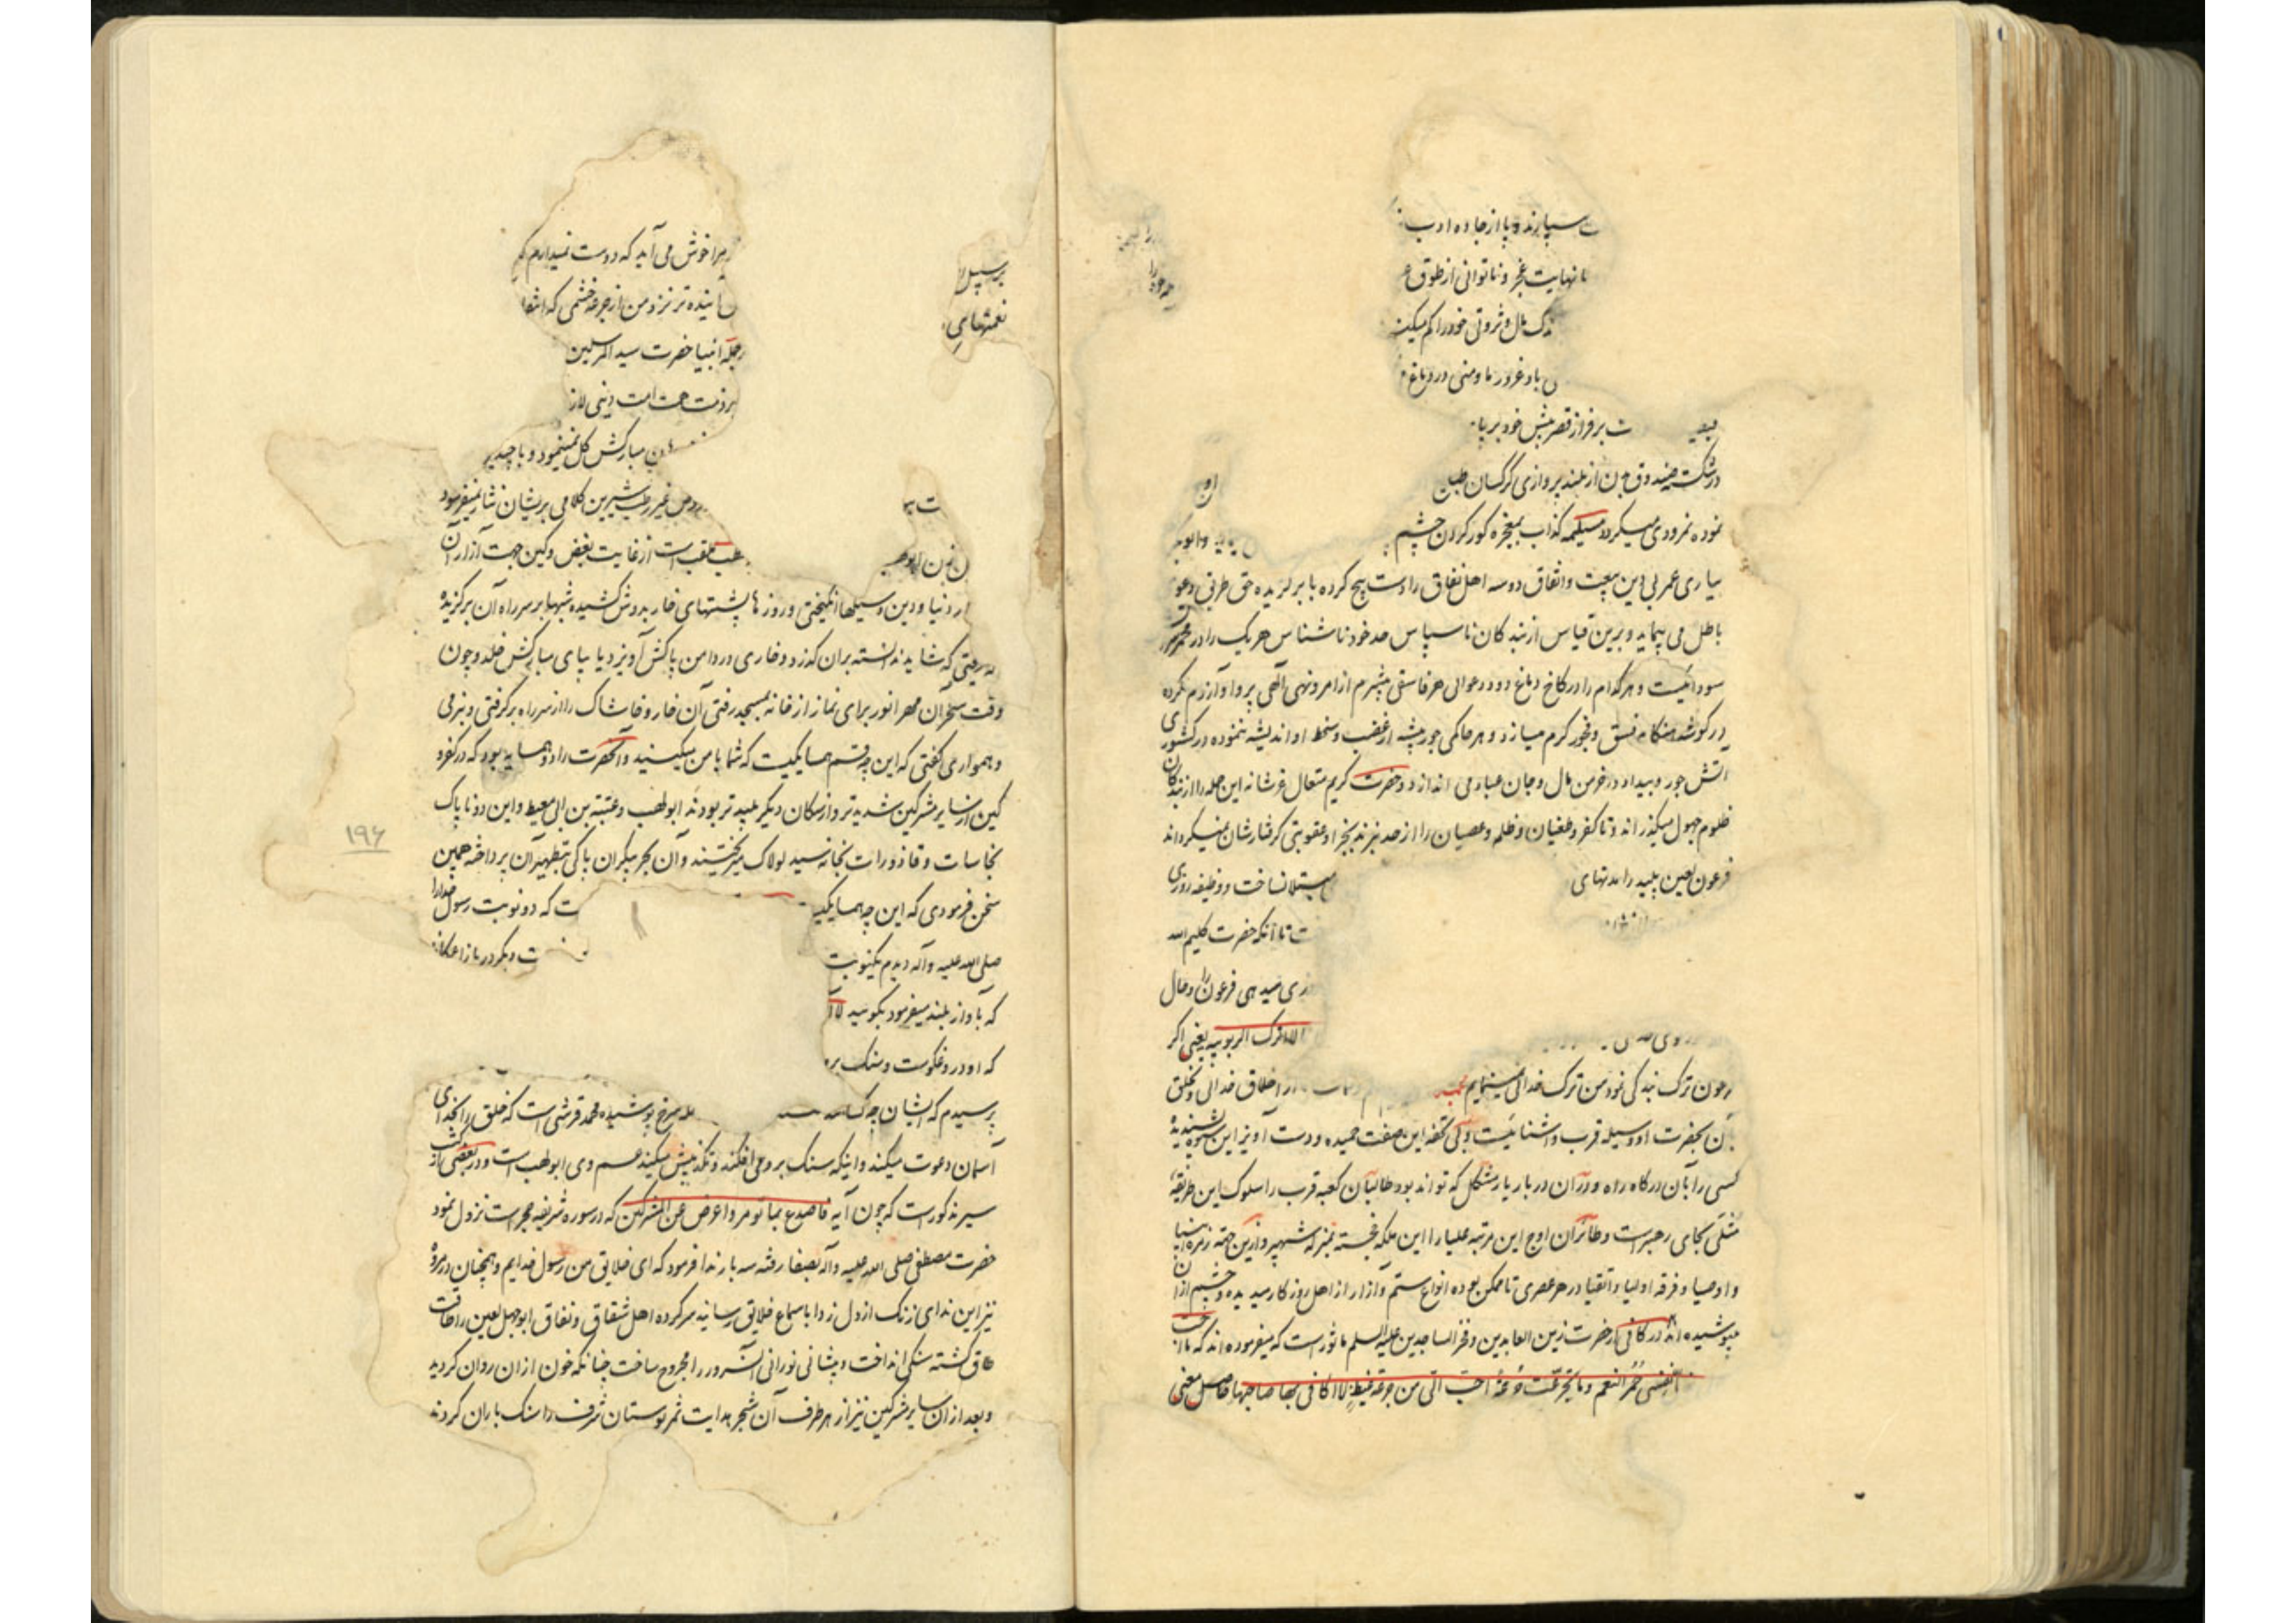 ت سپارند و پا از جاده ادب
با نهایت عجز و ناتوانی از طوق
ندک مال و ثروتی خود را کم میکند
باد غرور ما و منی در دماغ
ت بر فراز قصر بینش خود بر پا
در شکست صندوق از بلند پروازی کرکسان
نموده نمرودی میکرد مسیلمه کذاب بمعجزه کور کردن چشم
بیاری عمر بی دین بیعت و اتفاق دو سه اهل نفاق را دست پیچ کرده با برگزیده حق طریق دعوی
باطل می پیماید و برین قیاس از بندکان ناسپاس حد خود ناشناس هر یک را در
سودائیست و هر کدام را در کاخ دماغ دود در عوالی هر فاسقی بیشرم از امر و نهی آلهی پروا و آزرم نکرده
در کوشه هنکامه فسق و فجور کرم میسازد و هر حاکمی جور پیشه از غضب و سخط او اندیشه ننموده در کشوری
آتش جور و بیداد در خرمن مال و جان عباد می اندازد و حضرت کریم متعال عز شانه این جمله را از بندکان
ظلوم جهول میکذراند و تا کفر و طغیان و ظلم و عصیان را از حد نبرند بجزا و عقوبتی کرفتارشان نمیکرداند
فرعون لعین پلید را مدتهای مبتلا نساخت و وظیفه روزی
ت تا آنکه حضرت کلیم الله
روزی میدهی فرعون را و حال
الا اترک الربوبیه یعنی اکر
فرعون ترک بندکی نمود من ترک خدائی نمینمایم اخلاق خدائی و تخلق
بآن بحضرت او وسیله قرب و آشنائیست و بی تحفه این صفت حمیده و دست آویز این شیوه پسندیده
کسی را بآن درکاه راه و در آن دربار بار مشکل که تواند بود و طالبان کعبه قرب را سلوک این طریقه
مثلی بجای رهبر است و طائران اوج این مرتبه علیا را این ملکه خجسته بمنزله شهپر و ازین جهته زمره انبیا
و اوصیا و فرقه اولیا و اتقیا در هر عصری تا ممکن بوده انواع ستم و آزار از اهل روزکار میدیده و چشم از آن
میپوشیده اند در کافی از حضرت زین العابدین و فخر الساجدین علیه السلم ماثور است که میفرموده اند که ما احب
نفسی حمر النعم و ما تجرعت جرعة احب الی من جرعة غیظ لا اکافی بها صاحبها حاصل معنی
بر سبیل
نعمتهای
مرا خوش می آید که دوست نمیدارم که
آینده تر نزد من از جرعه خشمی که
جمله انبیا حضرت سید المرسلین
بر ذمت همت امت دینی لازم
مبارکش کل نمینمود و با چندین
غیر رطب شیرین کلامی بر ایشان نثار نمیفرمود
از غایت بغض و کین جهت آزار آن
دنیا و دین وسیلها انکیختی و روزها پشتهای خار بدوش کشیده شبها بر سر راه آن برکزیده
ریختی که شاید ندانسته بران کذرد و خاری در دامن پاکش آویزد یا بپای مبارکش خلد و چون
وقت سحر آن مهر انور برای نماز از خانه بمسجد رفتی آن خار و خاشاک را از سر راه برکرفتی و بنرمی
و همواری کفتی که این چه قسم همسایکیست که شما با من میکنید و آنحضرت را دو همسایه بود که در کفر و
کین از سایر مشرکین شدیدتر و از سکان دیکر پلیدتر بودند ابولهب و عتبة بن ابی معیط و این دو ناپاک
نجاسات و قاذورات بخانه سید لولاک میریختند و آن بحر بیکران پاکی بتطهیر آن پرداخته همین
سخن فرمودی که این چه همسایکی ت که دو نوبت رسول خدا را
صلی الله علیه و آله دیدم یکنوبت ت دیکر در بازار عکاظ
که بآواز بلند میفرمود بکوئید لا
که او دروغکوست و سنک بر
پرسیدم که ایشان چه سرخ پوشیده محمد قرشی است که خلق را بخدای
آسمان دعوت میکند و اینکه سنک بر وی افکند و تکذیبش میکند عم وی ابولهب است و در بعضی از کتب
سیر مذکور است که چون آیه فاصدع بما تومر و اعرض عن المشرکین که در سوره شریفه حجر است نزول نمود
حضرت مصطفی صلی الله علیه و آله بصفا رفته سه بار ندا فرمود که ای خلایق من رسول خدایم و همچنان در مروه
نیز این ندای زنک از دل زدا باسماع خلایق رسانید سرکرده اهل شقاق و نفاق ابوجهل لعین را طاقت
طاق کشته سنکی انداخت و پیشانی نورانی آنسرور را مجروح ساخت چنانکه خون از ان روان کردید
و بعد از ان سایر مشرکین نیز از هر طرف آن شجر هدایت ثمر بوستان شرف را سنک باران کردند
۱۹۶